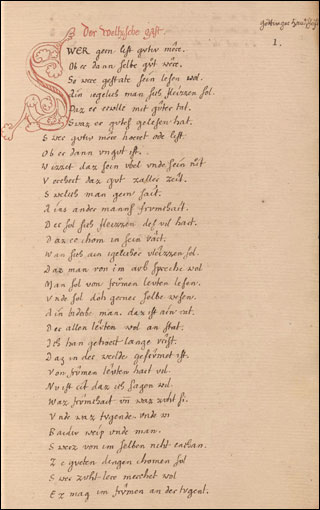 Der Welhische gast
1.
SWER gern list gutiv mere.
Ob er dann selbe gut were.
So were gestate sein lesen wol.
Ain iegelich man sich fleizzen sol.
Daz er ervlle mit guter tat.
Swaz er gutes gelesen hat.
Swer gutiv mere hoeret ode list
Ob er dann vngut ist.
Wizzet daz sein vbel vnde sein nit
Verchert daz gut zaller zeit.
Swelich man gern sait.
Ains ander manns frvmchait.
Der sol sich fleizzen des vil hart.
Daz er chom in sein vart.
Wan sich ain iegelicher vleizzen sol
Daz man von im avh spreche wol
Man sol von frumen levten lesen.
Vnde sol doh gerner selbe wesen.
Ain biderbe man. daz ist ain rat.
Der allen levten wol an stat.
Ich han getroest lange vrist.
Daz in der werlde gefrumet ist.
Von frumen levten hart vil.
Nu ist cit daz ich sagen wil.
Waz frumchait vn waz zvht si.
Vnde waz tvgende. vnde
Baidiv weip vnde man.
Swer von im selben niht enchan.
Ze guten dingen chomen sol
Swer zuht lere merchet wol
Ez mag im frumen an der tugent.